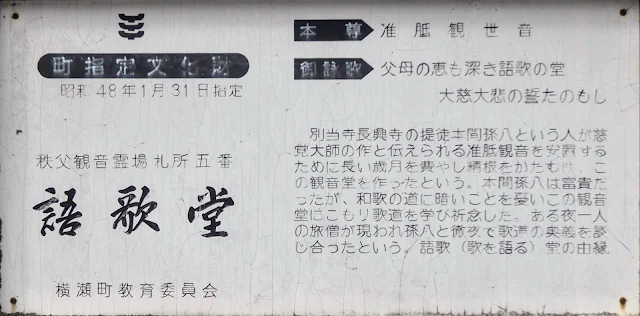 町指定文化財
昭和48年1月31日指定
秩父観音霊場札所五番
語歌堂
横瀬町教育委員会
本尊 准胝観世音
御詠歌 父母の恵も深き語歌の堂
大慈大悲の誓たのもし
別当寺長興寺の提徒本間孫八という人が慈
覚大師の作と伝えられる准胝観音を安置する
ために長い歳月を費やし精根をかたむけ、こ
の観音堂を作ったという。本間孫八は富貴だ
ったが、和歌の道に暗いことを憂いこの観音
堂にこもり歌道を学び祈念した。ある夜一人
の旅僧が現われ孫八と徹夜で歌道の奥義を談
じ合ったという。語歌（歌を語る）堂の由縁